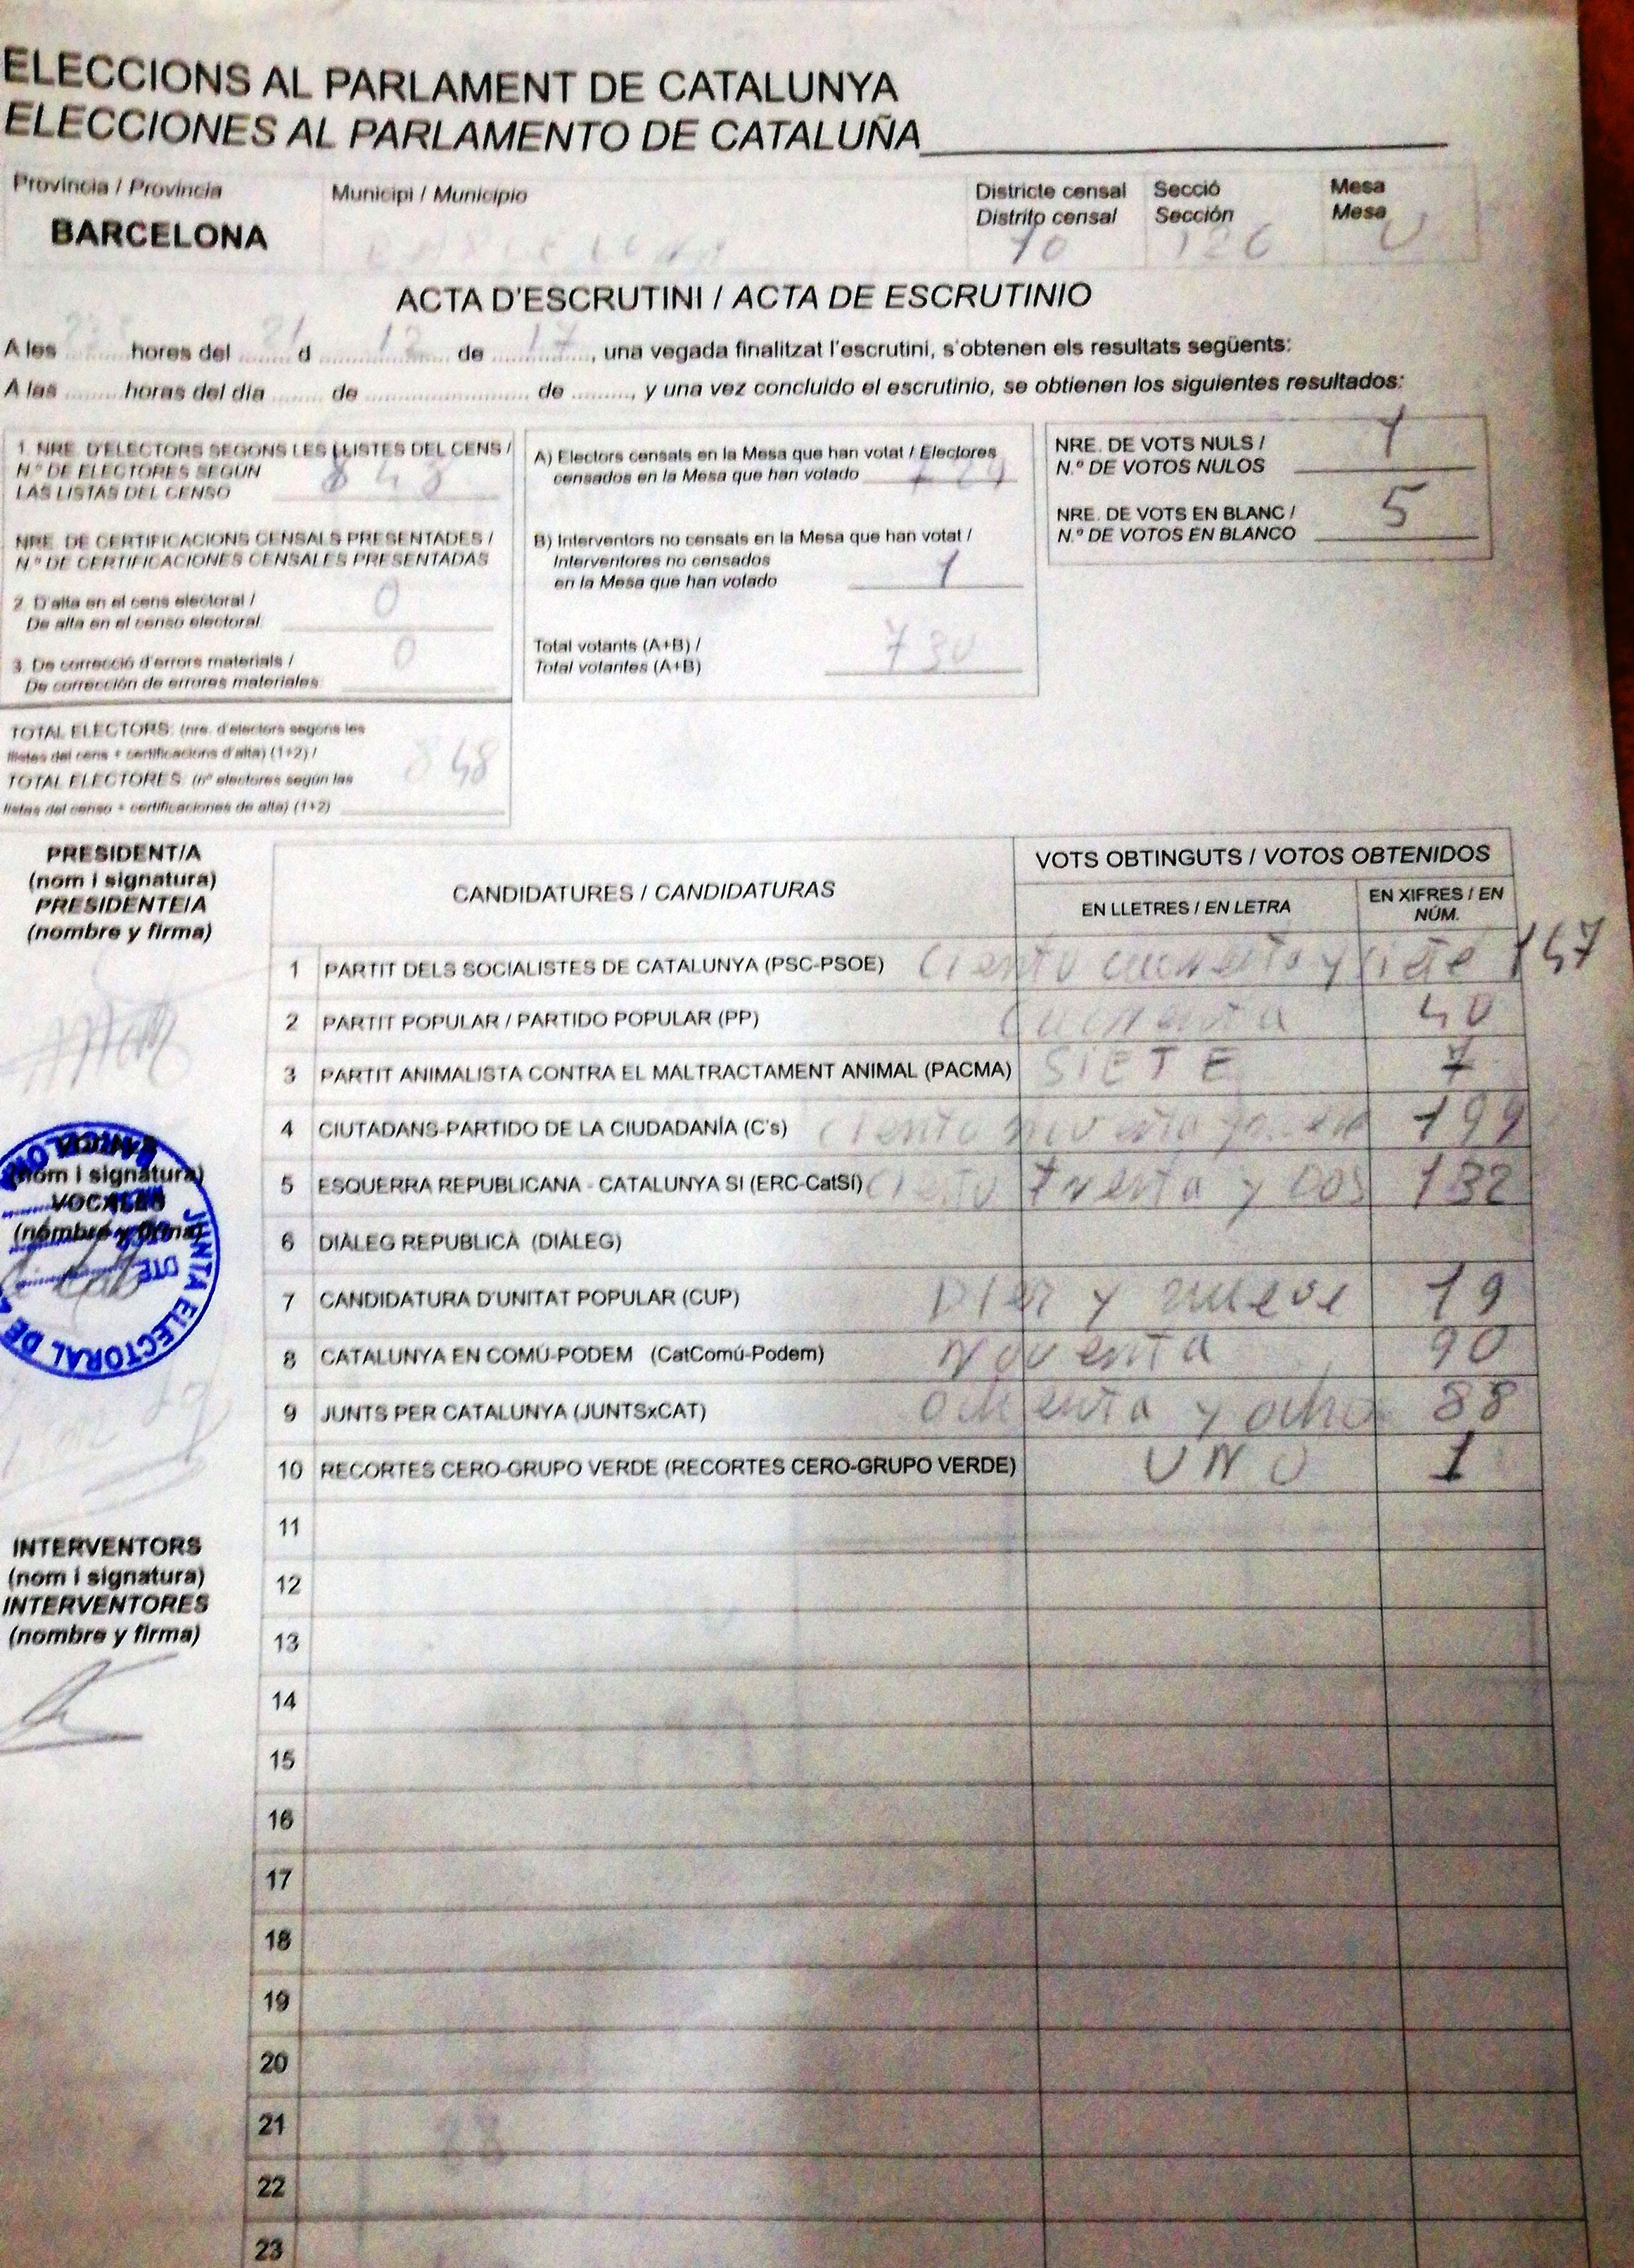 ELECCIONS AL PARLAMENT DE CATALUNYA
ELECCIONES AL PARLAMENTO DE CATALUÑA
Província / Provincia
Municipi / Municipio
Districte censal Secció Mesa
Distrito censal Sección Mesa
BARCELONA
10 126 U
ACTA D'ESCRUTINI / ACTA DE ESCRUTINIO
A les hores del 21 d 12 de 17, una vegada finalitzat l'escrutini, s'obtenen els resultats següents:
A las ........ horas del día ........ de ........................ de ........., y una vez concluido el escrutinio, se obtienen los siguientes resultados:
1. NRE. D'ELECTORS SEGONS LES LLISTES DEL CENS /
N.º DE ELECTORES SEGÚN
LAS LISTAS DEL CENSO 848
NRE. DE CERTIFICACIONS CENSALS PRESENTADES /
N.º DE CERTIFICACIONES CENSALES PRESENTADAS
2. D'alta en el cens electoral /
De alta en el censo electoral 0
3. De correcció d'errors materials /
De corrección de errores materiales 0
TOTAL ELECTORS: (nre. d'electors segons les
llistes del cens + certificacions d'alta) (1+2) /
TOTAL ELECTORES: (nº electores según las
listas del censo + certificaciones de alta) (1+2) 848
A) Electors censats en la Mesa que han votat / Electores
censados en la Mesa que han votado 729
B) Interventors no censats en la Mesa que han votat /
Interventores no censados
en la Mesa que han votado 1
Total votants (A+B) /
Total votantes (A+B) 730
NRE. DE VOTS NULS /
N.º DE VOTOS NULOS 1
NRE. DE VOTS EN BLANC /
N.º DE VOTOS EN BLANCO 5
PRESIDENT/A
(nom i signatura)
PRESIDENTE/A
(nombre y firma)
VOCALS
(nom i signatura)
VOCALES
(nombre y firma)
JUNTA ELECTORAL DE
INTERVENTORS
(nom i signatura)
INTERVENTORES
(nombre y firma)
CANDIDATURES / CANDIDATURAS
VOTS OBTINGUTS / VOTOS OBTENIDOS
EN LLETRES / EN LETRA
EN XIFRES / EN
NÚM.
1 PARTIT DELS SOCIALISTES DE CATALUNYA (PSC-PSOE) Ciento cuarenta y siete 147
2 PARTIT POPULAR / PARTIDO POPULAR (PP) Cuarenta 40
3 PARTIT ANIMALISTA CONTRA EL MALTRACTAMENT ANIMAL (PACMA) SIETE 7
4 CIUTADANS-PARTIDO DE LA CIUDADANÍA (C's) Ciento noventa y 199
5 ESQUERRA REPUBLICANA - CATALUNYA SÍ (ERC-CatSí) Ciento treinta y DOS 132
6 DIÀLEG REPUBLICÀ (DIÀLEG)
7 CANDIDATURA D'UNITAT POPULAR (CUP) Diez y nueve 19
8 CATALUNYA EN COMÚ-PODEM (CatComú-Podem) Noventa 90
9 JUNTS PER CATALUNYA (JUNTSxCAT) ochenta y ocho 88
10 RECORTES CERO-GRUPO VERDE (RECORTES CERO-GRUPO VERDE) UNO 1
11
12
13
14
15
16
17
18
19
20
21
22
23